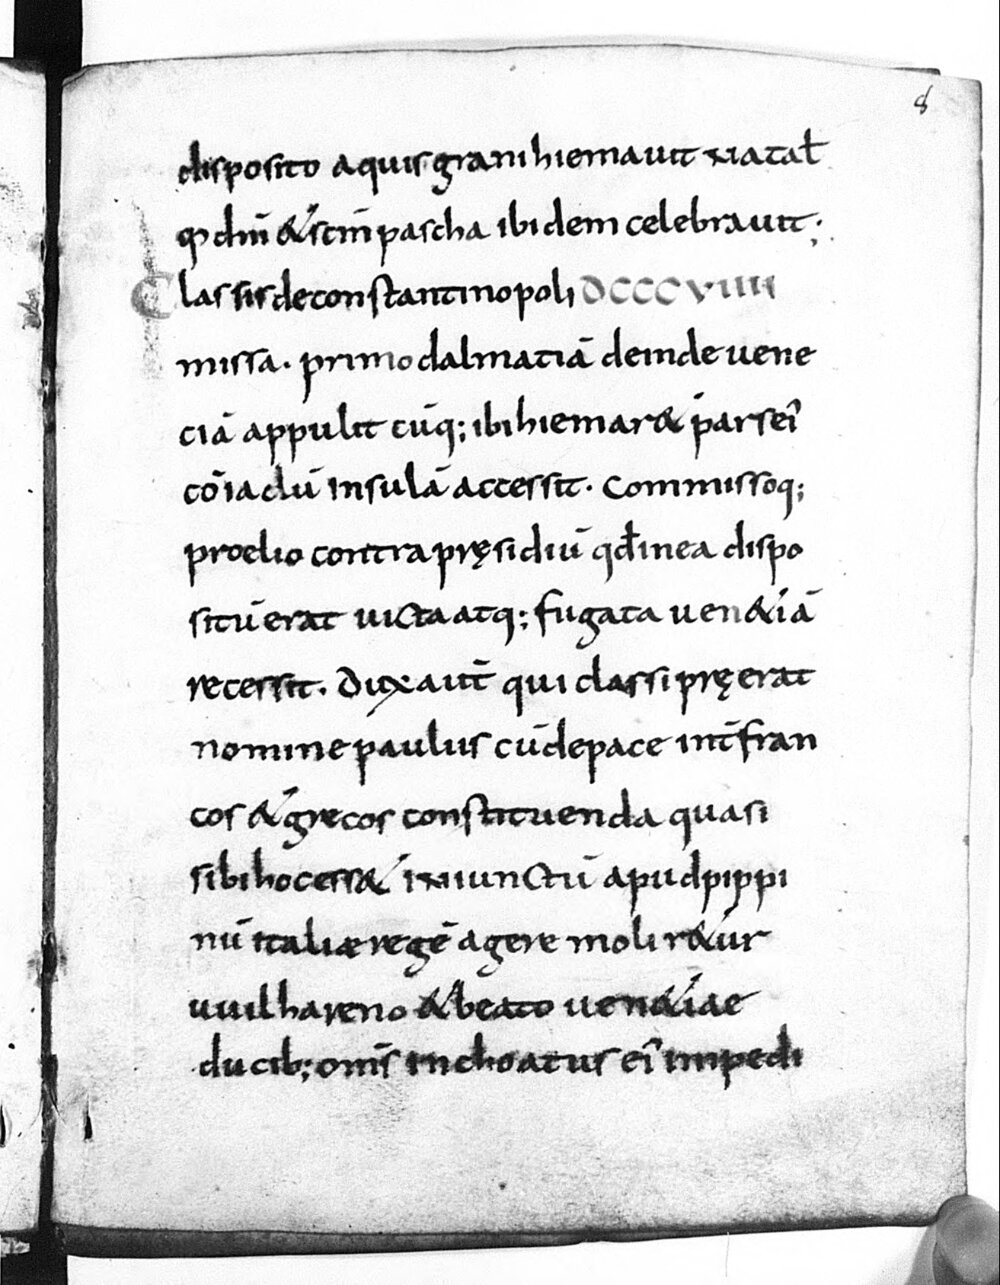 8
disposito aquisgrani hiemauit & natał
q̄ dn̄i & sc̄m pascha ibidem celebrauit;
Classis de constantinopoli DCCCVIIII
missa. primo dalmatiā deinde uene
ciā appulit cūq; ibi hiemar& pars ei᾽
cōiadū insulā accessit. Commissoq;
proelio contra pręsidiū qđ in ea dispo
sitū erat uicta atq; fugata uen&iā
recessit. Dux aut̄ qui classi pręerat
nomine paulus cū de pace int̄ fran
cos & grecos constituenda quasi
sibi hoc ess& iniunctū apud pippi
nū italiae regē agere molir&ur
uuilhareno & beato uen&iae
ducib; om̄s inchoatus ei᾽ impedi